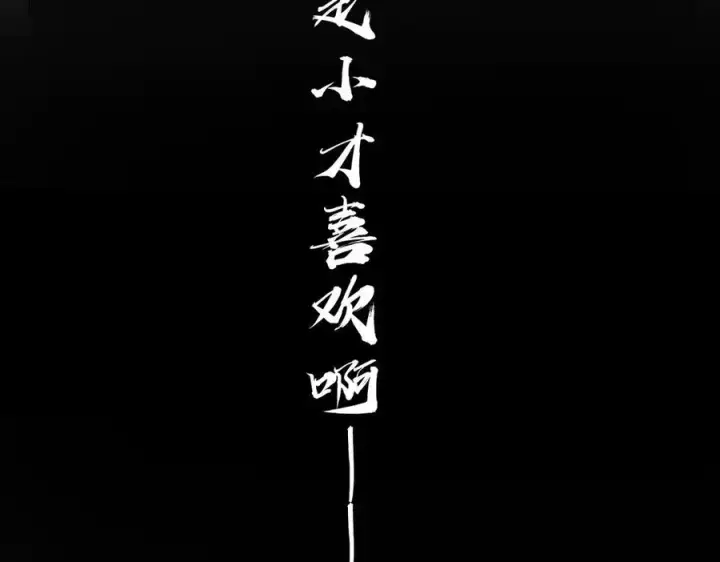 是小才喜欢啊——